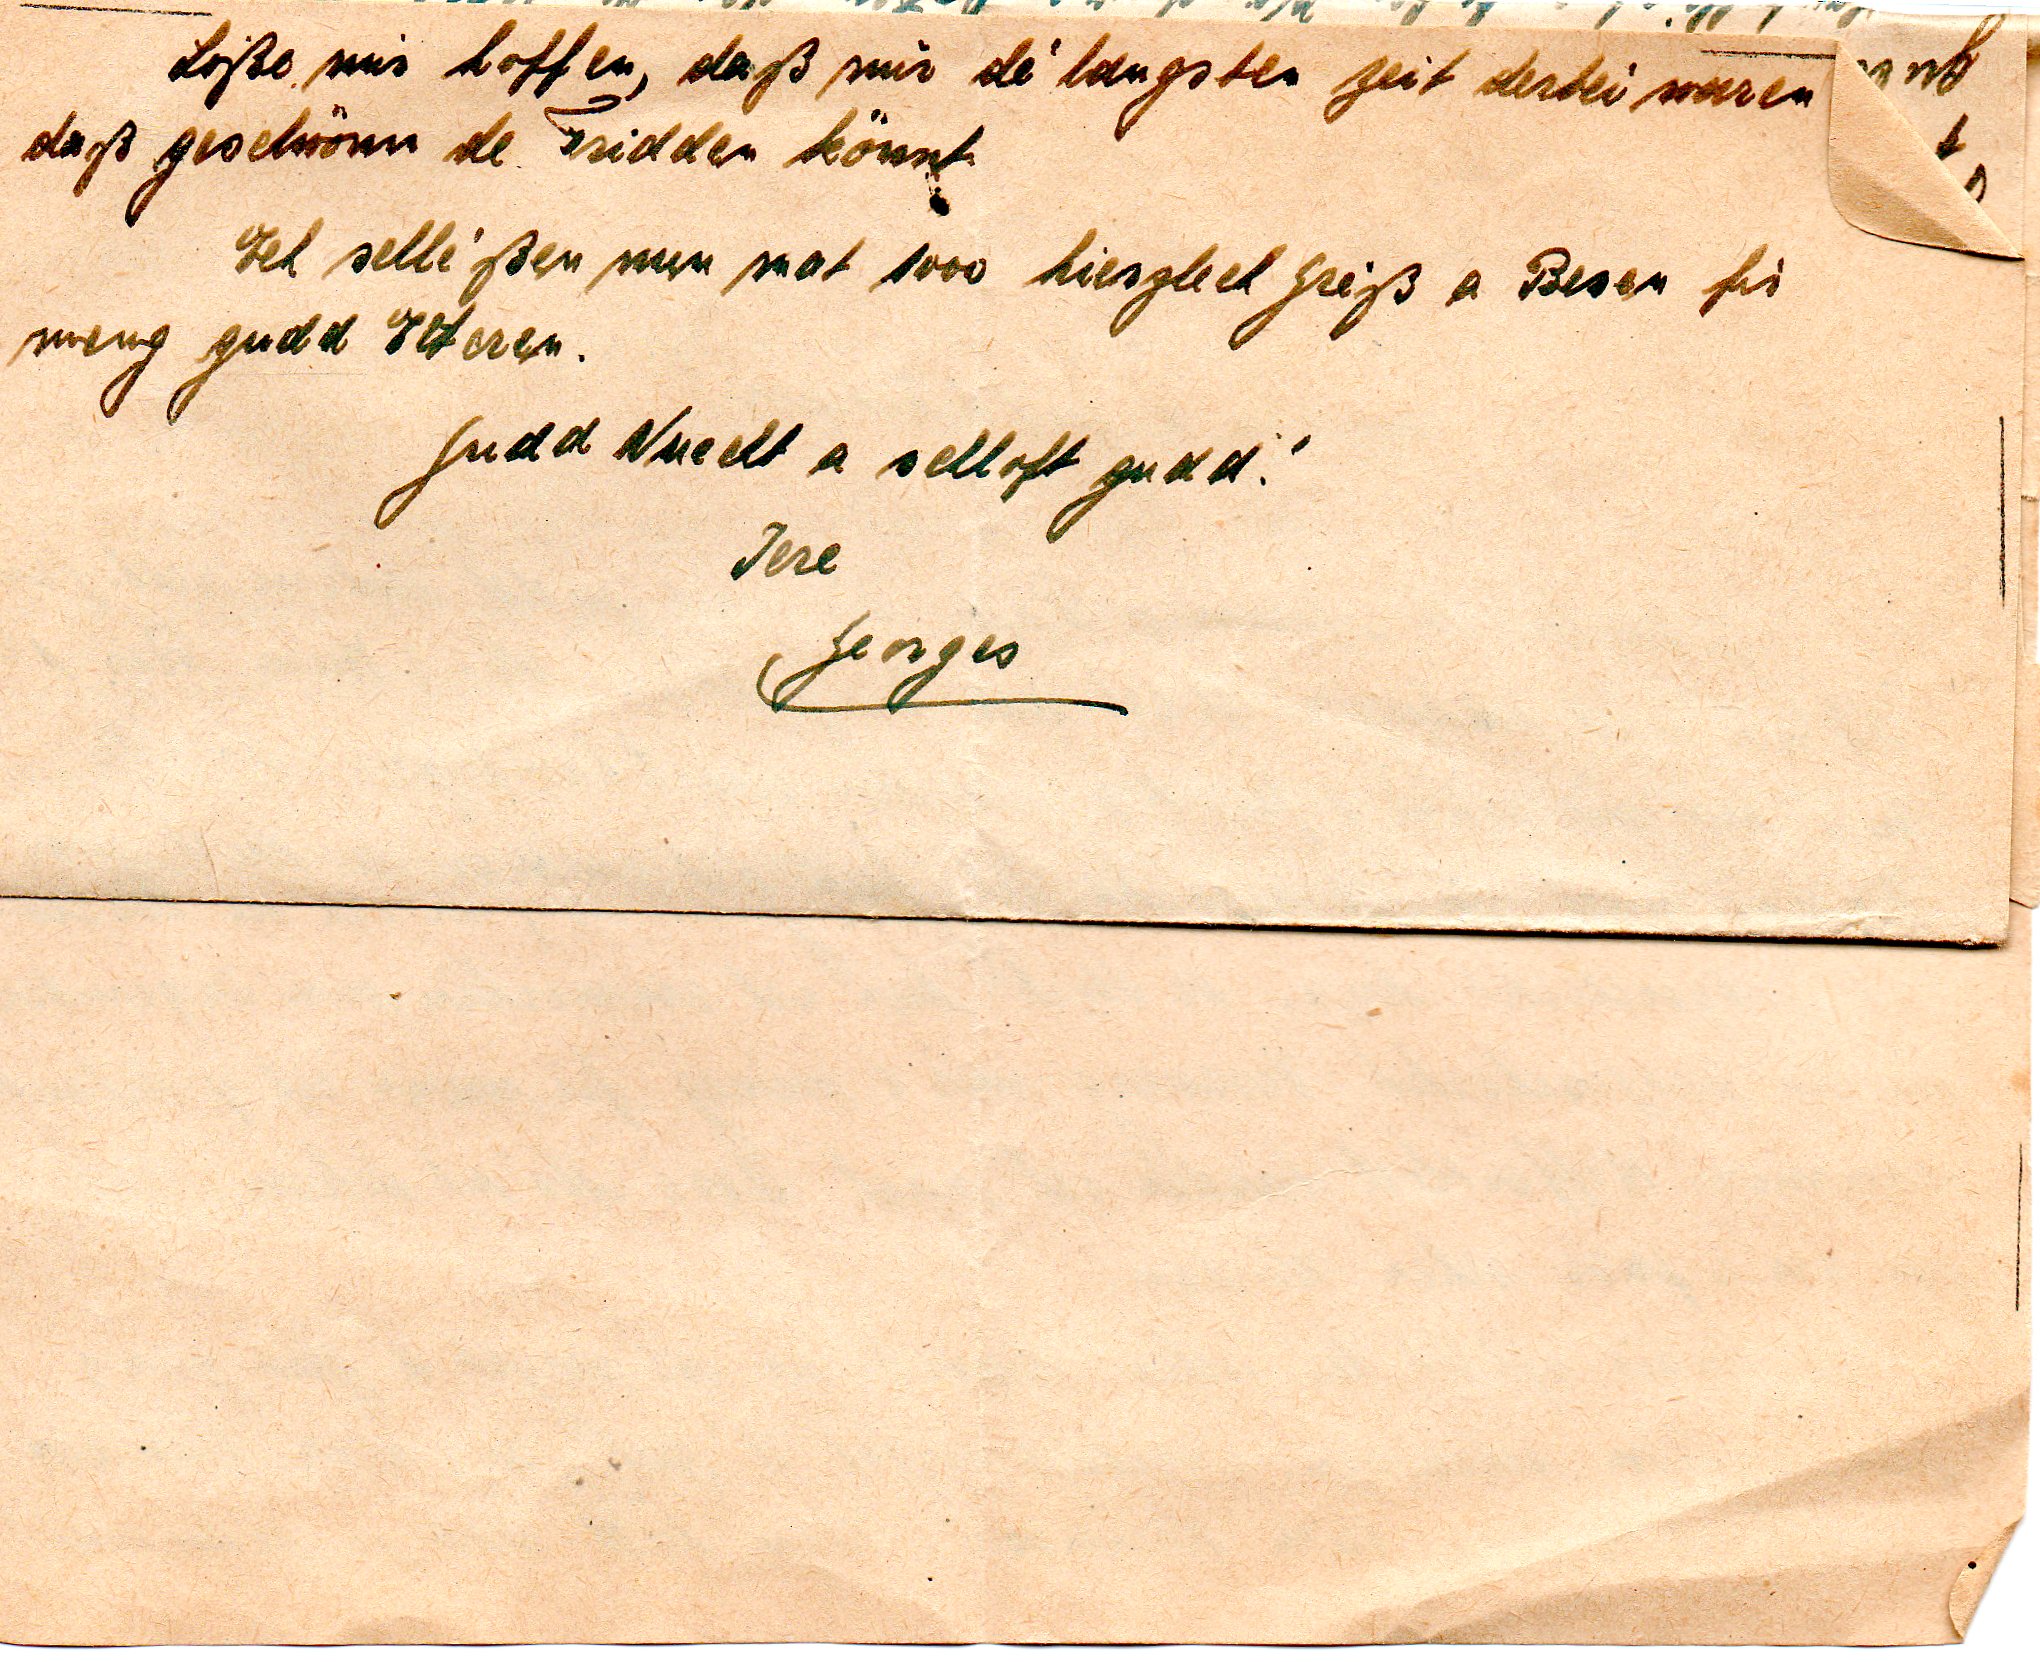 Loße mir hoffen, daß mir dé längsten Zeit derbei waren
daß geschwönn de Fridden könnt.
Ech schléßen nun mat 1000 hierzlech Gréiß a Besen fir
meng gudd Elteren.
Gudd Nuecht a schloft gudd!
Iere
Georges